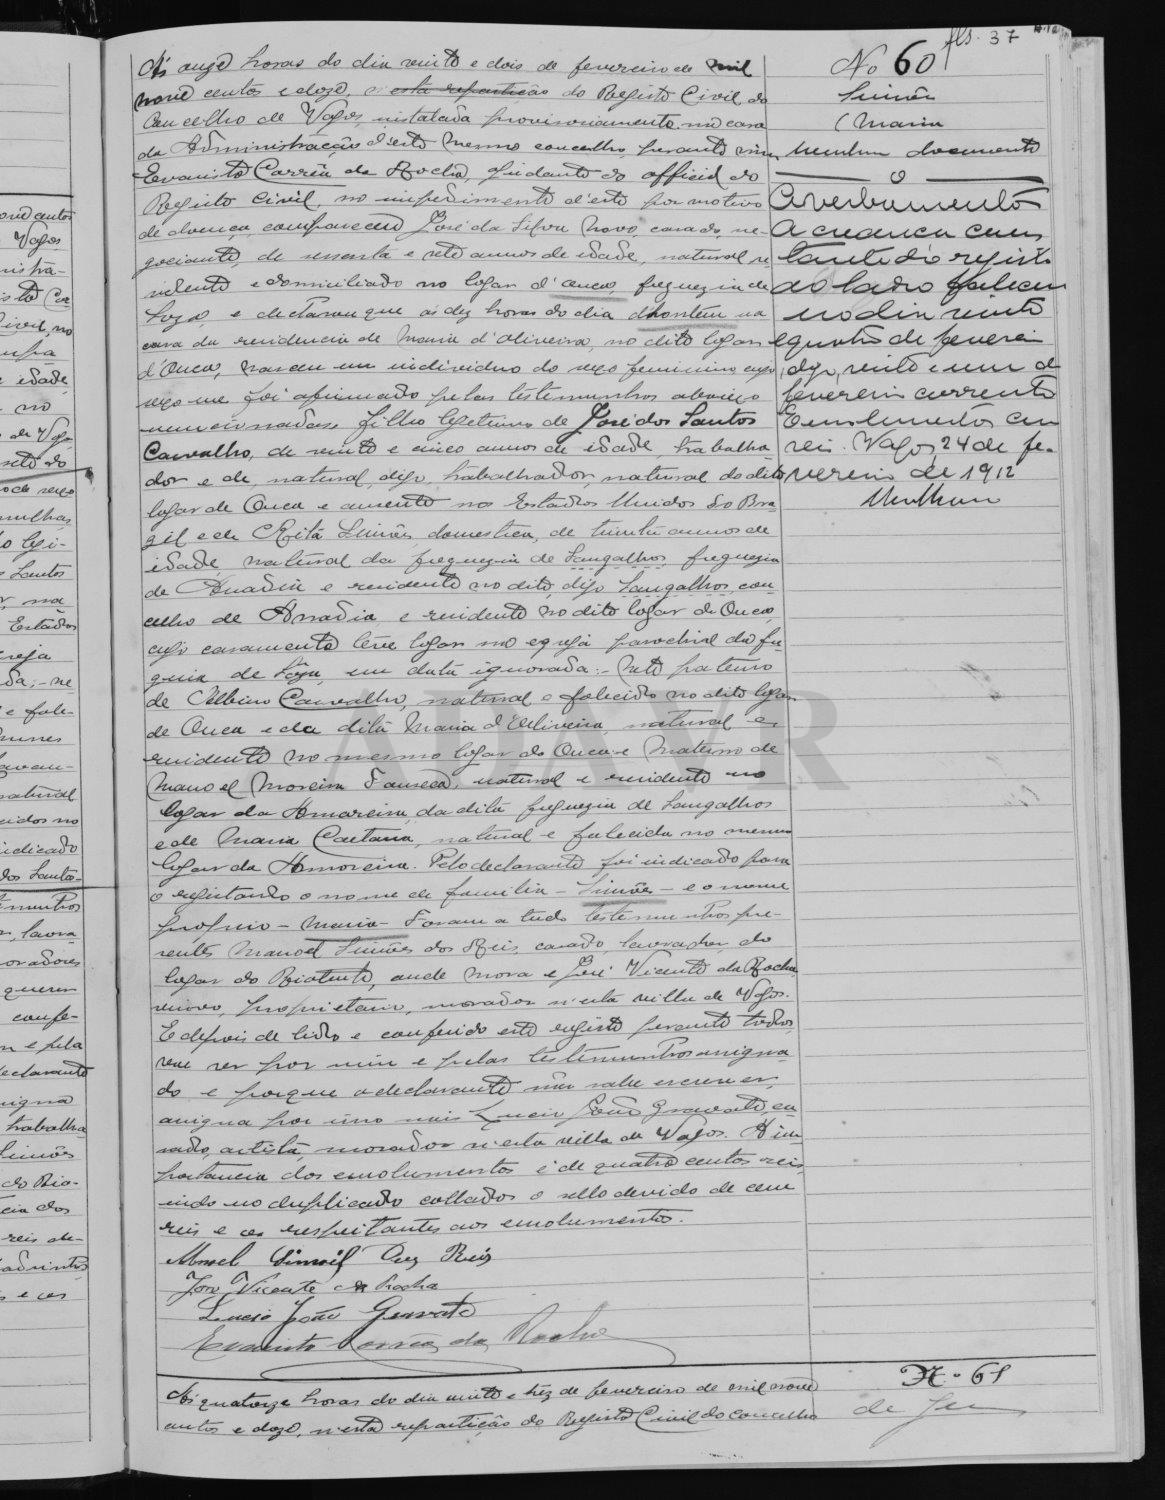 fls. 37
Ás onze horas do dia vinte e dois de fevereiro de mil
nove centos e doze, n'esta repartição do Registo Civil do
Concelho de Vagos, installada provisoriamente na casa
da Administração d'este mesmo concelho, perante mim
Evaristo Corrêa da Rocha, ajudante do official do
Registo Civil, no impedimento d'este por motivo
de doença, compareceu José da Silva Novo, casado, ne-
gociante, de sessenta e sete annos de idade, natural re
sidente e domiciliado no logar d'Ouca, freguezia de
Soza, e declarou que ás dez horas do dia d'hontem na
casa da residencia de Maria d'Oliveira, no dito logar
d'Ouca, nasceu um individuo do sexo feminino cujo
sexo me foi afirmado pelas testemunhas abaixo
mencionadas, filho legitimo de José dos Santos
Carvalho, de vinte e cinco annos de idade, trabalha-
dor e de, natural, digo, trabalhador, natural do dito
logar de Ouca e ausente nos Estados Unidos do Bra
zil e de Rita Simões, domestica, de trinta annos de
idade, natural da freguezia de Sangalhos, freguezia
de Anadia e residente no dito, digo Sangalhos, con
celho de Anadia, e residente no dito logar de Ouca,
cujo casamento teve logar na egreja parochial da fre
guezia de Soza, em data ignorada:- Neto paterno
de Albino Carvalho, natural e falecido no dito logar
de Ouca e da dita Maria d'Oliveira, natural e
residente no mesmo logar de Ouca e Materno de
Manoel Moreira Fonseca, natural e residente no
logar da Amoreira, da dita freguezia de Sangalhos
e de Maria Caetana, natural e falecida no mesmo
logar da Amoreira. Pelo declarante foi indicado para
o registando o nome de familia - Simões - e o nome
proprio - Maria - Foram a tudo testemunhas pre-
sentes Manoel Simões dos Reis, casado, lavrador, do
logar do Riotinto, onde mora e José Vicente da Rocha,
viuvo, proprietario, morador n'esta villa de Vagos.
E depois de lido e conferido este registo perante todos,
vae ser por mim e pelas testemunhas assigna
do e porque o declarante não sabe escrever,
assigna por isso mais Lucio João Gravato, ca
sado, artista, morador n'esta villa de Vagos. A im
portancia dos emolumentos é de quatro centos reis
indo no duplicado collados o sello devido de cem
reis e os respeitantes aos emolumentos.
Manoel Simões dos Reis
José Vicente da Rocha
Lucio João Gravato
Evaristo Corrêa da Rocha
Ás quatorze horas do dia vinte e trez de fevereiro de mil nove
centos e doze, n'esta repartição do Registo Civil do Concelho
No 60
Simões
(Maria
Nenhum documento
Averbamento
A creança cons
tante do registo
ao lado faleceu
no dia vinte
e quatro de fevereiro
digo, vinte e um de
fevereiro corrente
Emolumentos cem
reis. Vagos 24 de fe-
vereiro de 1912
Nº 61
ADAVR